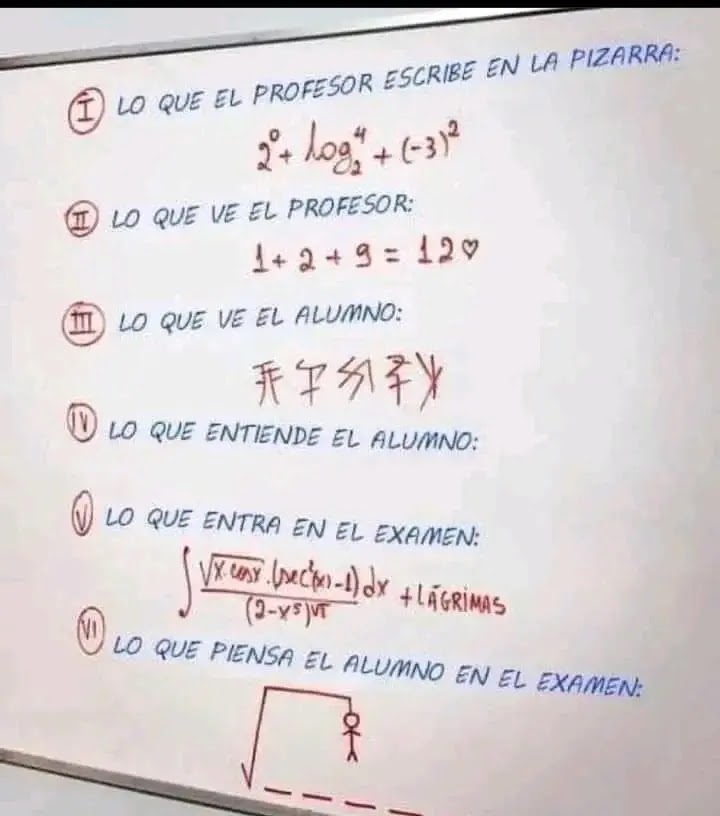 I LO QUE EL PROFESOR ESCRIBE EN LA PIZARRA:
2⁰ + log₂⁴ + (-3)²
II LO QUE VE EL PROFESOR:
1 + 2 + 9 = 12♡
III LO QUE VE EL ALUMNO:
IV LO QUE ENTIENDE EL ALUMNO:
V LO QUE ENTRA EN EL EXAMEN:
∫ √x·cosx · (sec²(x) - 1) dx + LÁGRIMAS
VI LO QUE PIENSA EL ALUMNO EN EL EXAMEN: